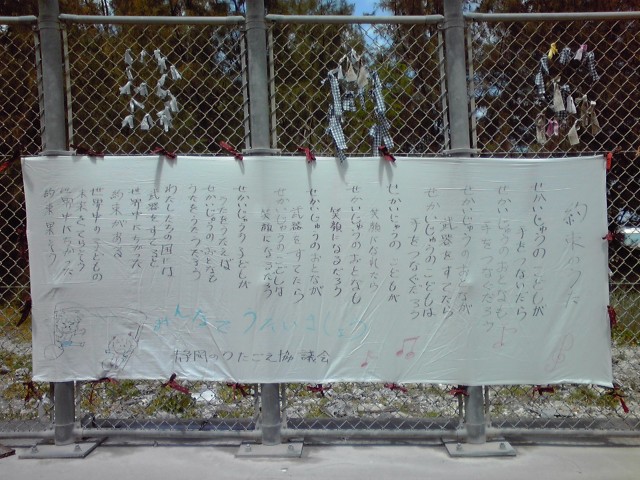 約束のうた
せかいじゅうの こどもが
手をつないだら
せかいじゅうの おとなも
手を つなぐだろう
せかいじゅうの こどもは
武器をすてたら
手をつなぐだろう
せかいじゅうの こどもが
笑顔になるだろう
せかいじゅうのおとなが
武器をすてたら
せかいじゅうのこどもは
笑顔になるだろう
せかいじゅうのこどもが
うたをうたえば
せかいじゅうのおとなも
うたをうたうだろう
わたしたちの国には
武器をすてると
世界中にちかった
約束がある
世界中のこどもの
世界中にちかった
約束 果そう
みんなで うたいましょう
静岡のうたごえ協議会